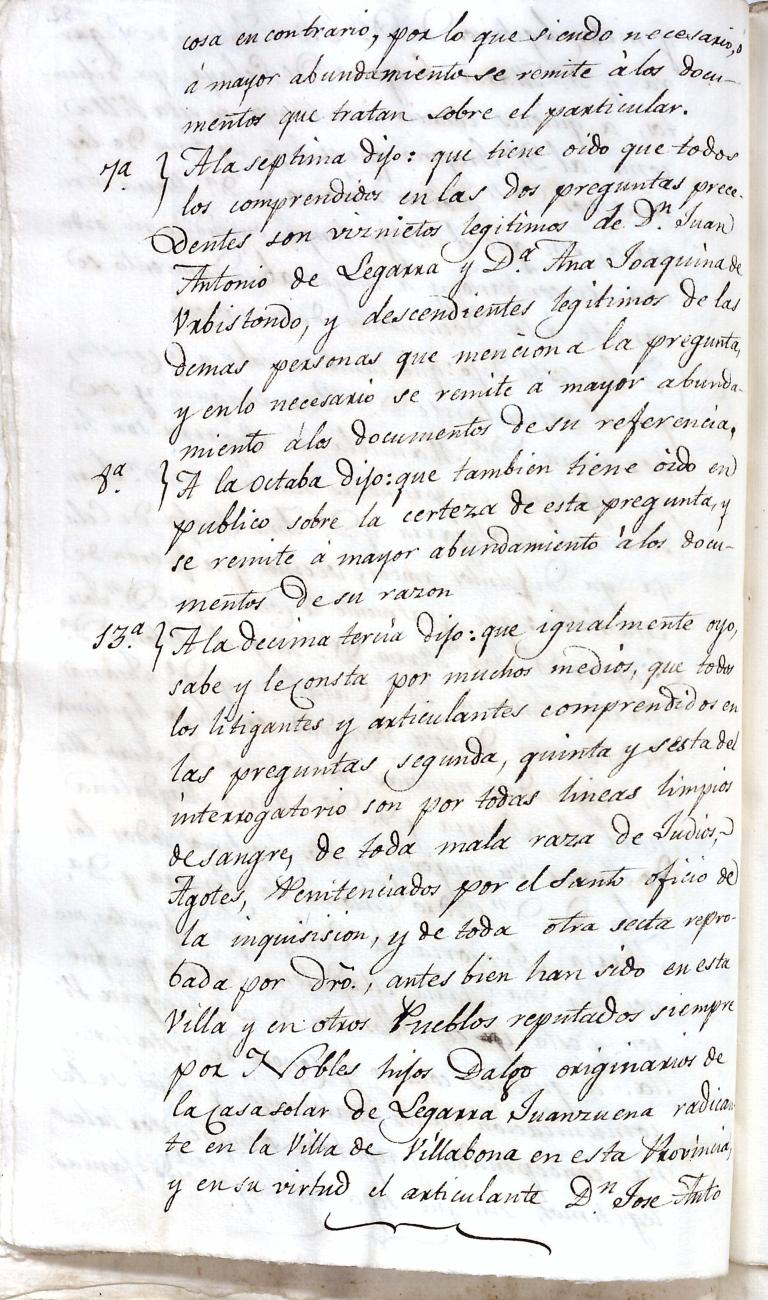 cosa en contrario, por lo que siendo necesario, ó
á mayor abundamiento se remite à los docu-
mentos que tratan sobre el particular.
7ª } A la septima dijo: que tiene oido que todos
los comprendidos en las dos preguntas prece-
dentes son viznietos legitimos de Dn. Juan
Antonio de Legarra y D.ª Ana Joaquina de
Urbistondo, y descendientes legitimos de las
demas personas que menciona la pregunta,
y en lo necesario se remite á mayor abunda-
miento álos documentos de su referencia.
8ª. } A la octaba dijo: que tambien tiene oido en
publico sobre la certeza de esta pregunta, y
se remite á mayor abundamiento à los docu-
mentos de su razon
13.ª } A la decima tercia dijo: que igualmente oyo,
sabe y le consta por muchos medios, que todos
los litigantes y articulantes comprendidos en
las preguntas segunda, quinta y sesta del
interrogatorio son por todas lineas limpios
de sangre, de toda mala raza de Judios,
Agotes, Penitenciados por el Santo oficio de
la inquisision, y de toda otra secta repro-
bada por dro., antes bien han sido en esta
Villa y en otros Pueblos reputados siempre
por Nobles hijos Dalgo originarios de
la Casa solar de Legarra Juanzuena radican-
te en la Villa de Villabona en esta Provincia,
y en su virtud el articulante Dn. Jose Anto